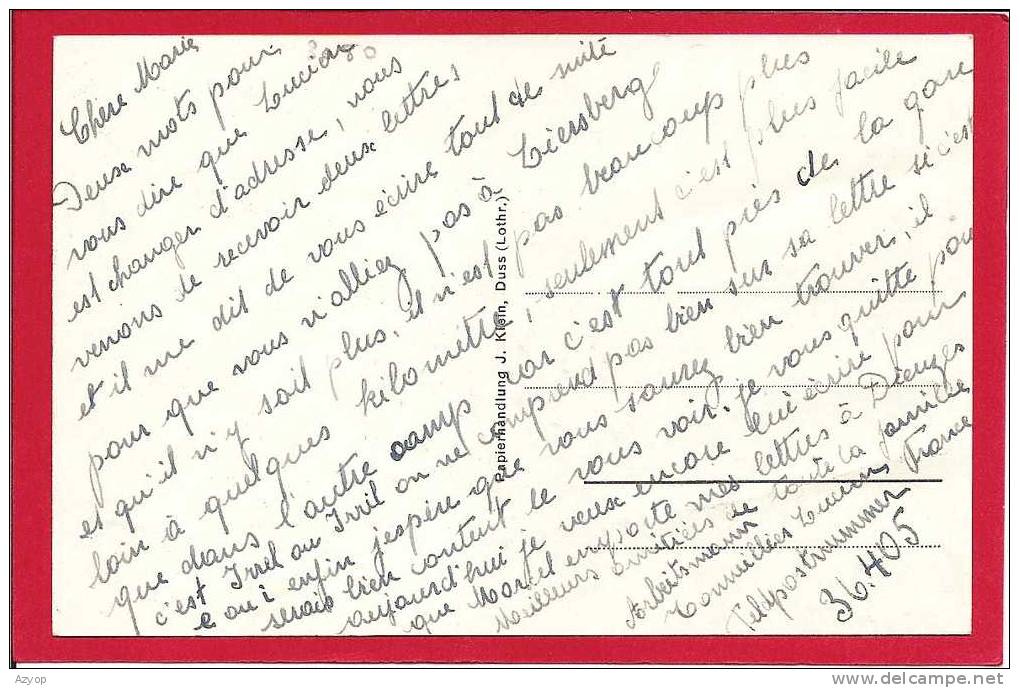 Chère Marie
Deux mots pour
vous dire que Lucien
est changer d'adresse, nous
venons de recevoir deux lettres
et il me dit de vous écrire tout de suite
pour que vous n'alliez pas à Liersberg
et qu'il n'y soit plus, il n'est pas beaucoup plus
loin à quelques kilomètre, seulement c'est plus facile
que dans l'autre camp car c'est tout près de la gare
c'est Irrel ou Irril on ne comprend pas bien sur sa lettre si c'est
e ou i enfin j'espère que vous saurez bien trouver, il
serais bien content de vous voir. je vous quitte pour
aujourd'hui je veux encore lui écrire pour
que Marcel emporte mes lettres à Dieuze
Meilleurs amitiés de toute la famille
Arbeitsmann
Lucien France
Feldpostnummer
36.405
Papierhandlung J. Klein, Duss (Lothr.)
Azyop
delcampe.net